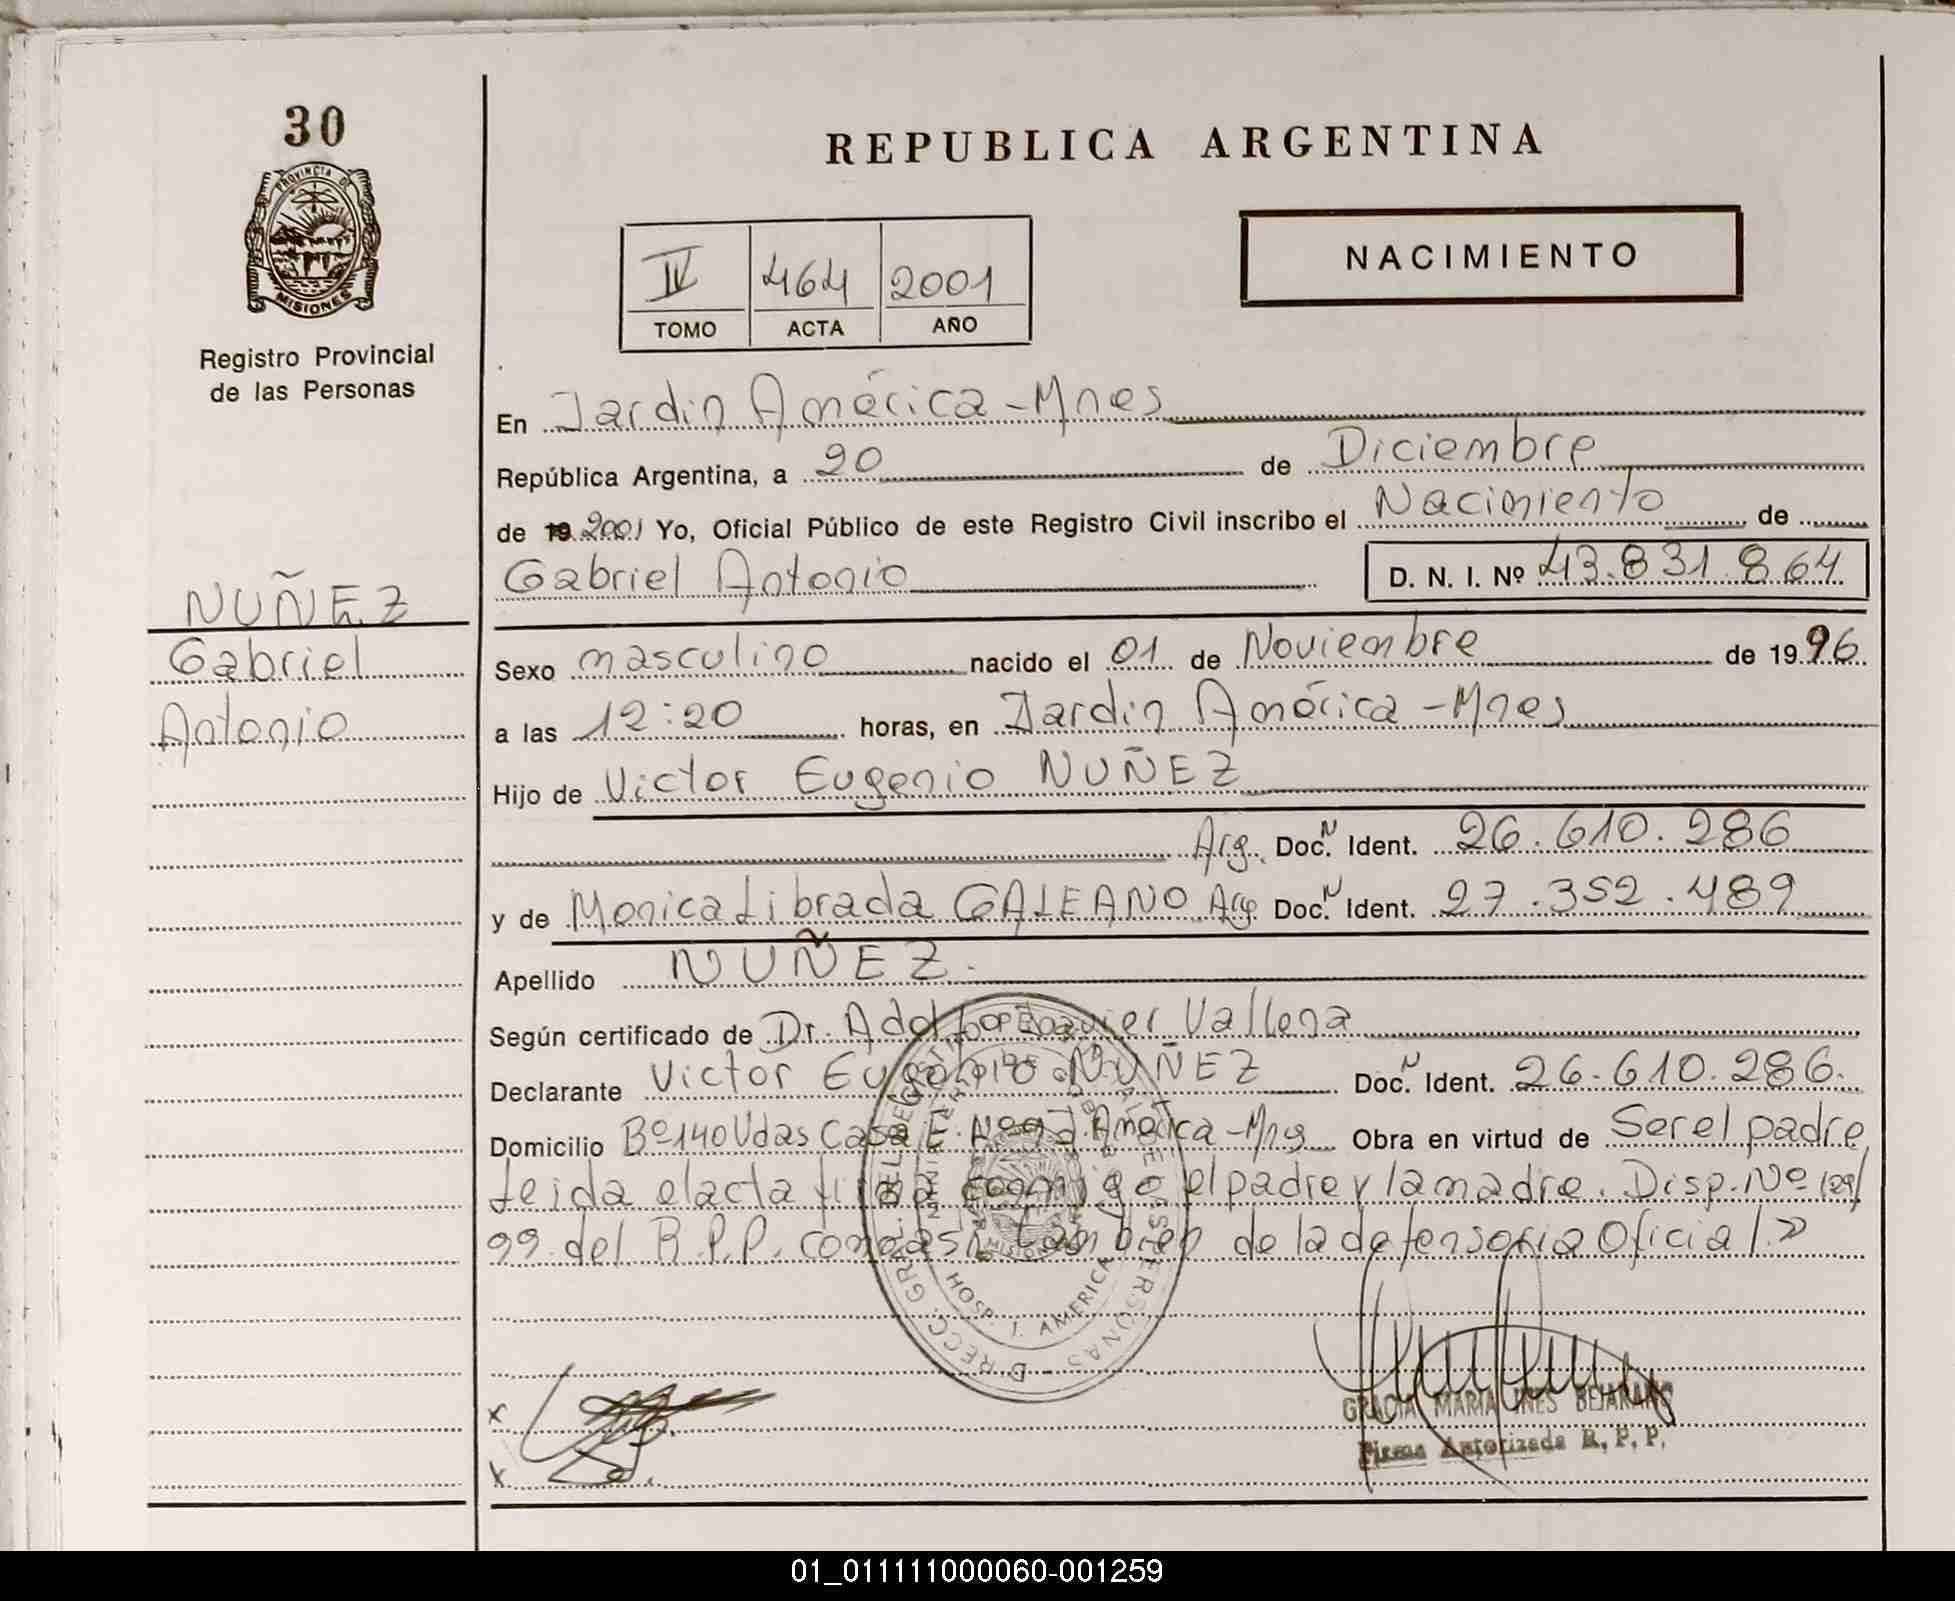 30
PROVINCIA DE
MISIONES
Registro Provincial
de las Personas
REPUBLICA ARGENTINA
NACIMIENTO
IV 464 2001
TOMO ACTA AÑO
En Jardin América - Mnes
República Argentina, a 20 de Diciembre
de 19 2001 Yo, Oficial Público de este Registro Civil inscribo el Nacimiento de
Gabriel Antonio D. N. I. Nº 43.831.864
NUÑEZ
Gabriel
Antonio
Sexo masculino nacido el 01 de Noviembre de 1996
a las 12:20 horas, en Jardin América - Mnes
Hijo de Victor Eugenio NUÑEZ
Arg. Doc. N Ident. 26.610.286
y de Monica Librada GALEANO Arg Doc. N Ident. 27.352.489
Apellido NUÑEZ.
Según certificado de Dr. Adolfo Javier Vallena
Declarante Victor Eugenio NUÑEZ Doc. N Ident. 26.610.286.
Domicilio Bº 140 Vdas Casa E. América - Mnes Obra en virtud de Ser el padre
Leida el acta firma conmigo el padre y la madre. Disp. Nº 129/
99 del R.P.P. como asi tambien de la defensoria Oficial. »
HOSP. J. AMERICA
GRACIA MARIA INES BEJARANO
Firma Autorizada R. P. P.
x
x
01_011111000060-001259